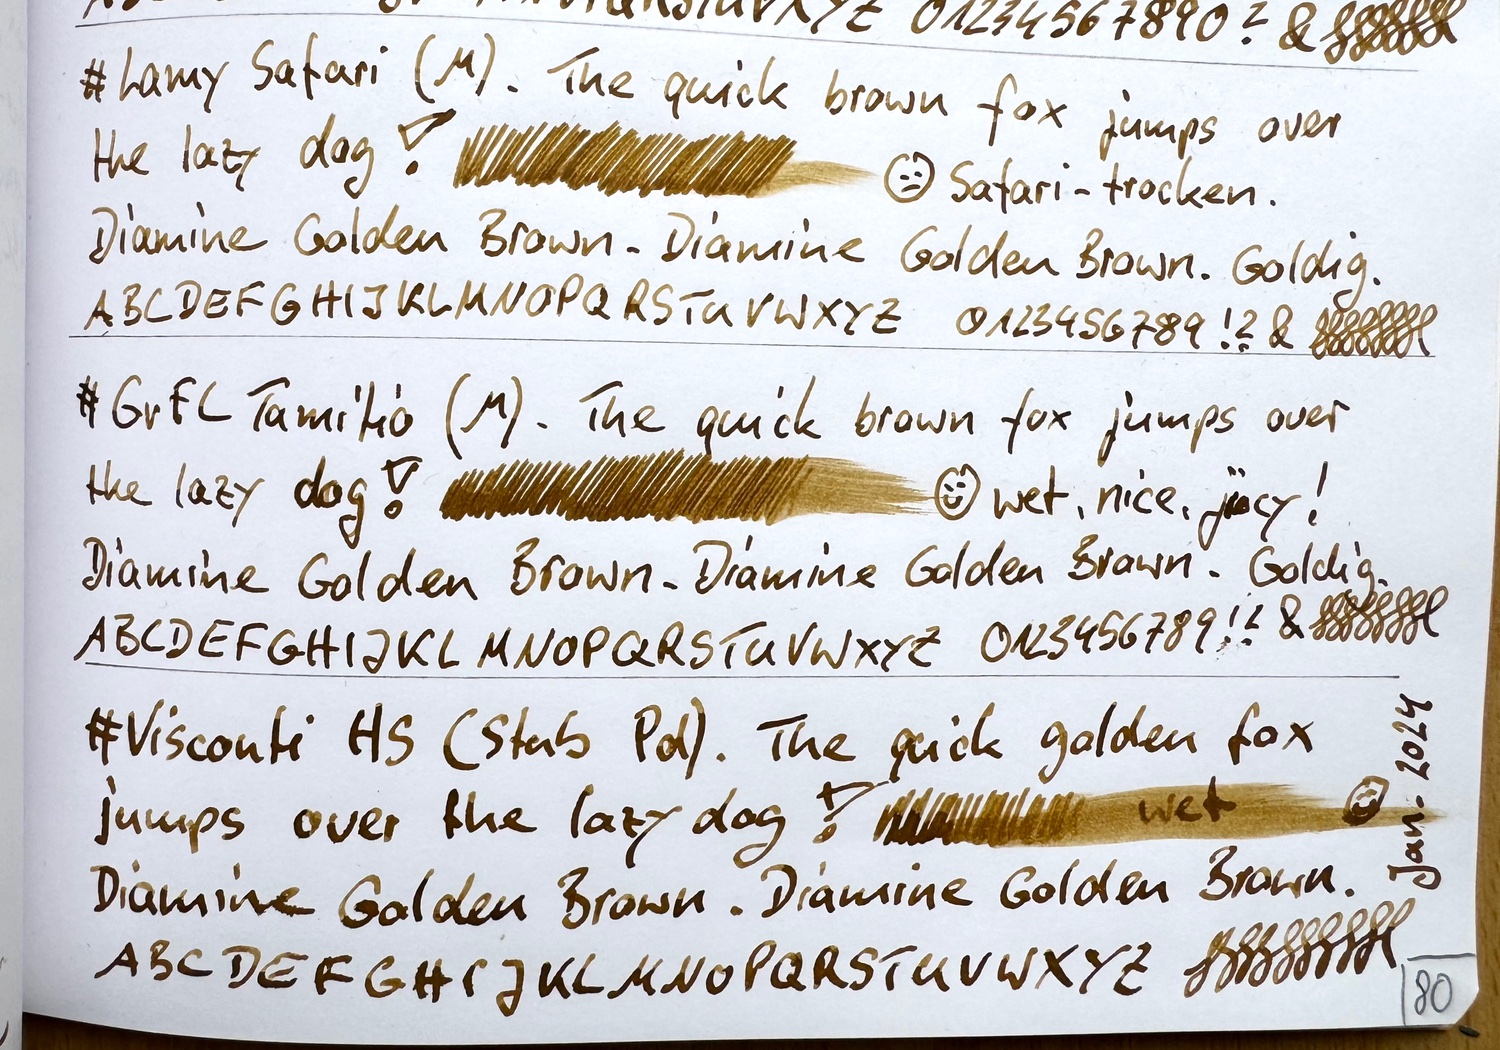 0 1 2 3 4 5 6 7 8 9 0 ? &
#Lamy Safari (M). The quick brown fox jumps over
the lazy dog! Safari-trocken.
Diamine Golden Brown - Diamine Golden Brown. Goldig.
ABCDEFGHIJKLMNOPQRSTUVWXYZ 0123456789 !? &
#GvFC Tamitio (M). The quick brown fox jumps over
the lazy dog! wet, nice, jücy!
Diamine Golden Brown - Diamine Golden Brown. Goldig.
ABCDEFGHIJKLMNOPQRSTUVWXYZ 0123456789 !? &
#Visconti HS (Stub Pd). The quick golden fox
jumps over the lazy dog! wet
Diamine Golden Brown. Diamine Golden Brown.
ABCDEFGHIJKLMNOPQRSTUVWXYZ
Jan. 2024
80